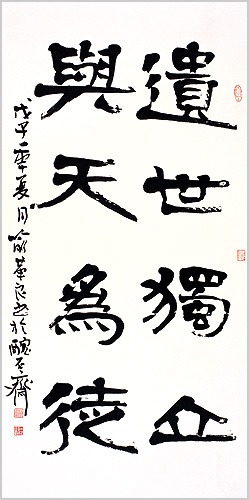 遺世獨立
與天為徒
戊子年夏月俞華良书於醜石齋